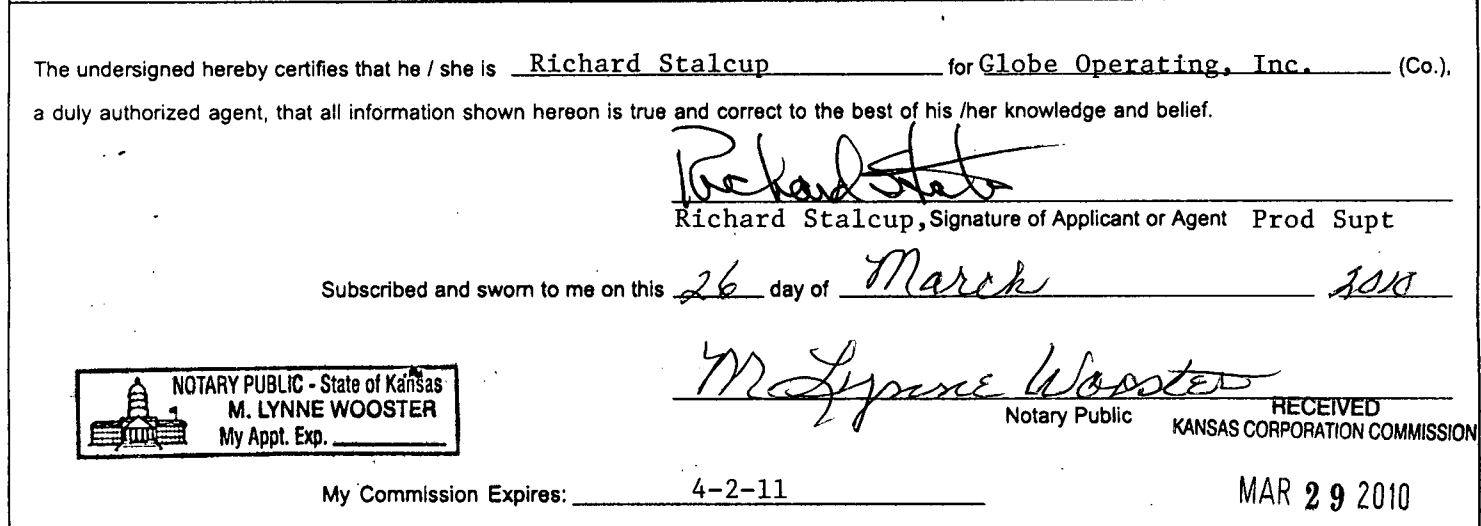 The undersigned hereby certifies that he / she is Richard Stalcup for Globe Operating, Inc. (Co.),
a duly authorized agent, that all information shown hereon is true and correct to the best of his /her knowledge and belief.
Richard Stalcup, Signature of Applicant or Agent Prod Supt
Subscribed and sworn to me on this 26 day of March 2010
M Lynne Wooster
NOTARY PUBLIC - State of Kansas
M. LYNNE WOOSTER
My Appt. Exp.
Notary Public
RECEIVED
KANSAS CORPORATION COMMISSION
My Commission Expires: 4-2-11
MAR 29 2010